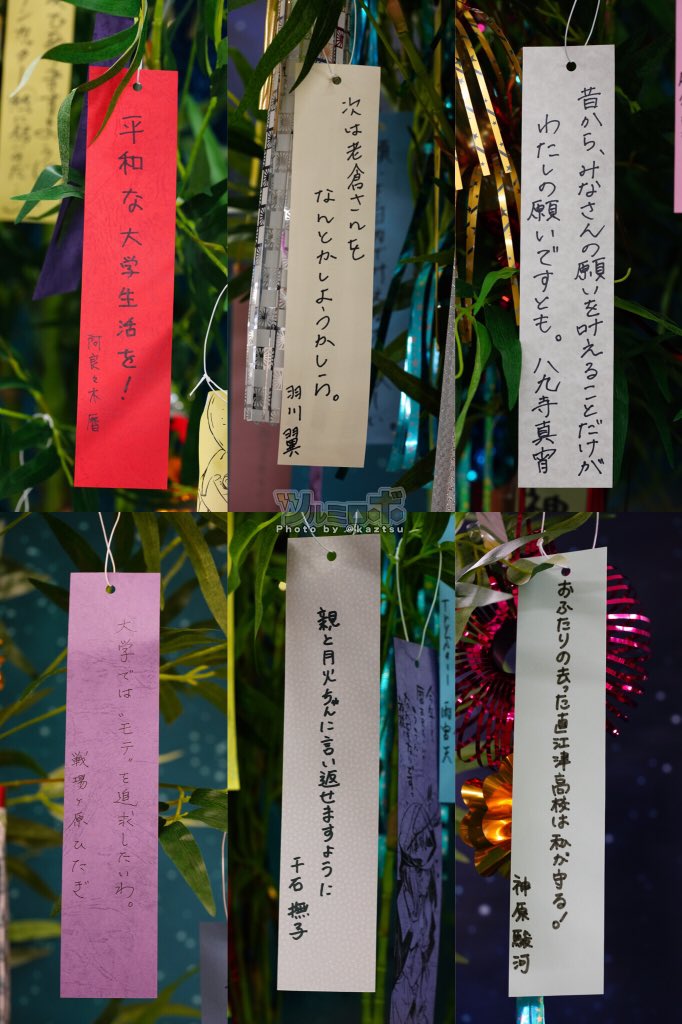 平和な大学生活を!
阿良々木暦
次は老倉さんを
なんとかしようかしら。
羽川翼
昔から、みなさんの願いを叶えることだけが
わたしの願いですとも。八九寺真宵
ツルミロボ
Photo by @kaztsu
大学では〝モテ〟を追求したいわ。
戦場ヶ原ひたぎ
親と月火ちゃんに言い返せますように
千石撫子
TrySail 雨宮天
おふたりの去った直江津高校は私が守る!
神原駿河